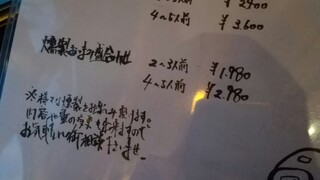 ¥2400
4~5人前 ¥3.600
燻製おつまみ盛合わせ
2~3人前 ¥1.980
4~5人前 ¥2.980
※様々な燻製を
内容や量の変更も出来ますので
お気軽に御相談下さいませ。